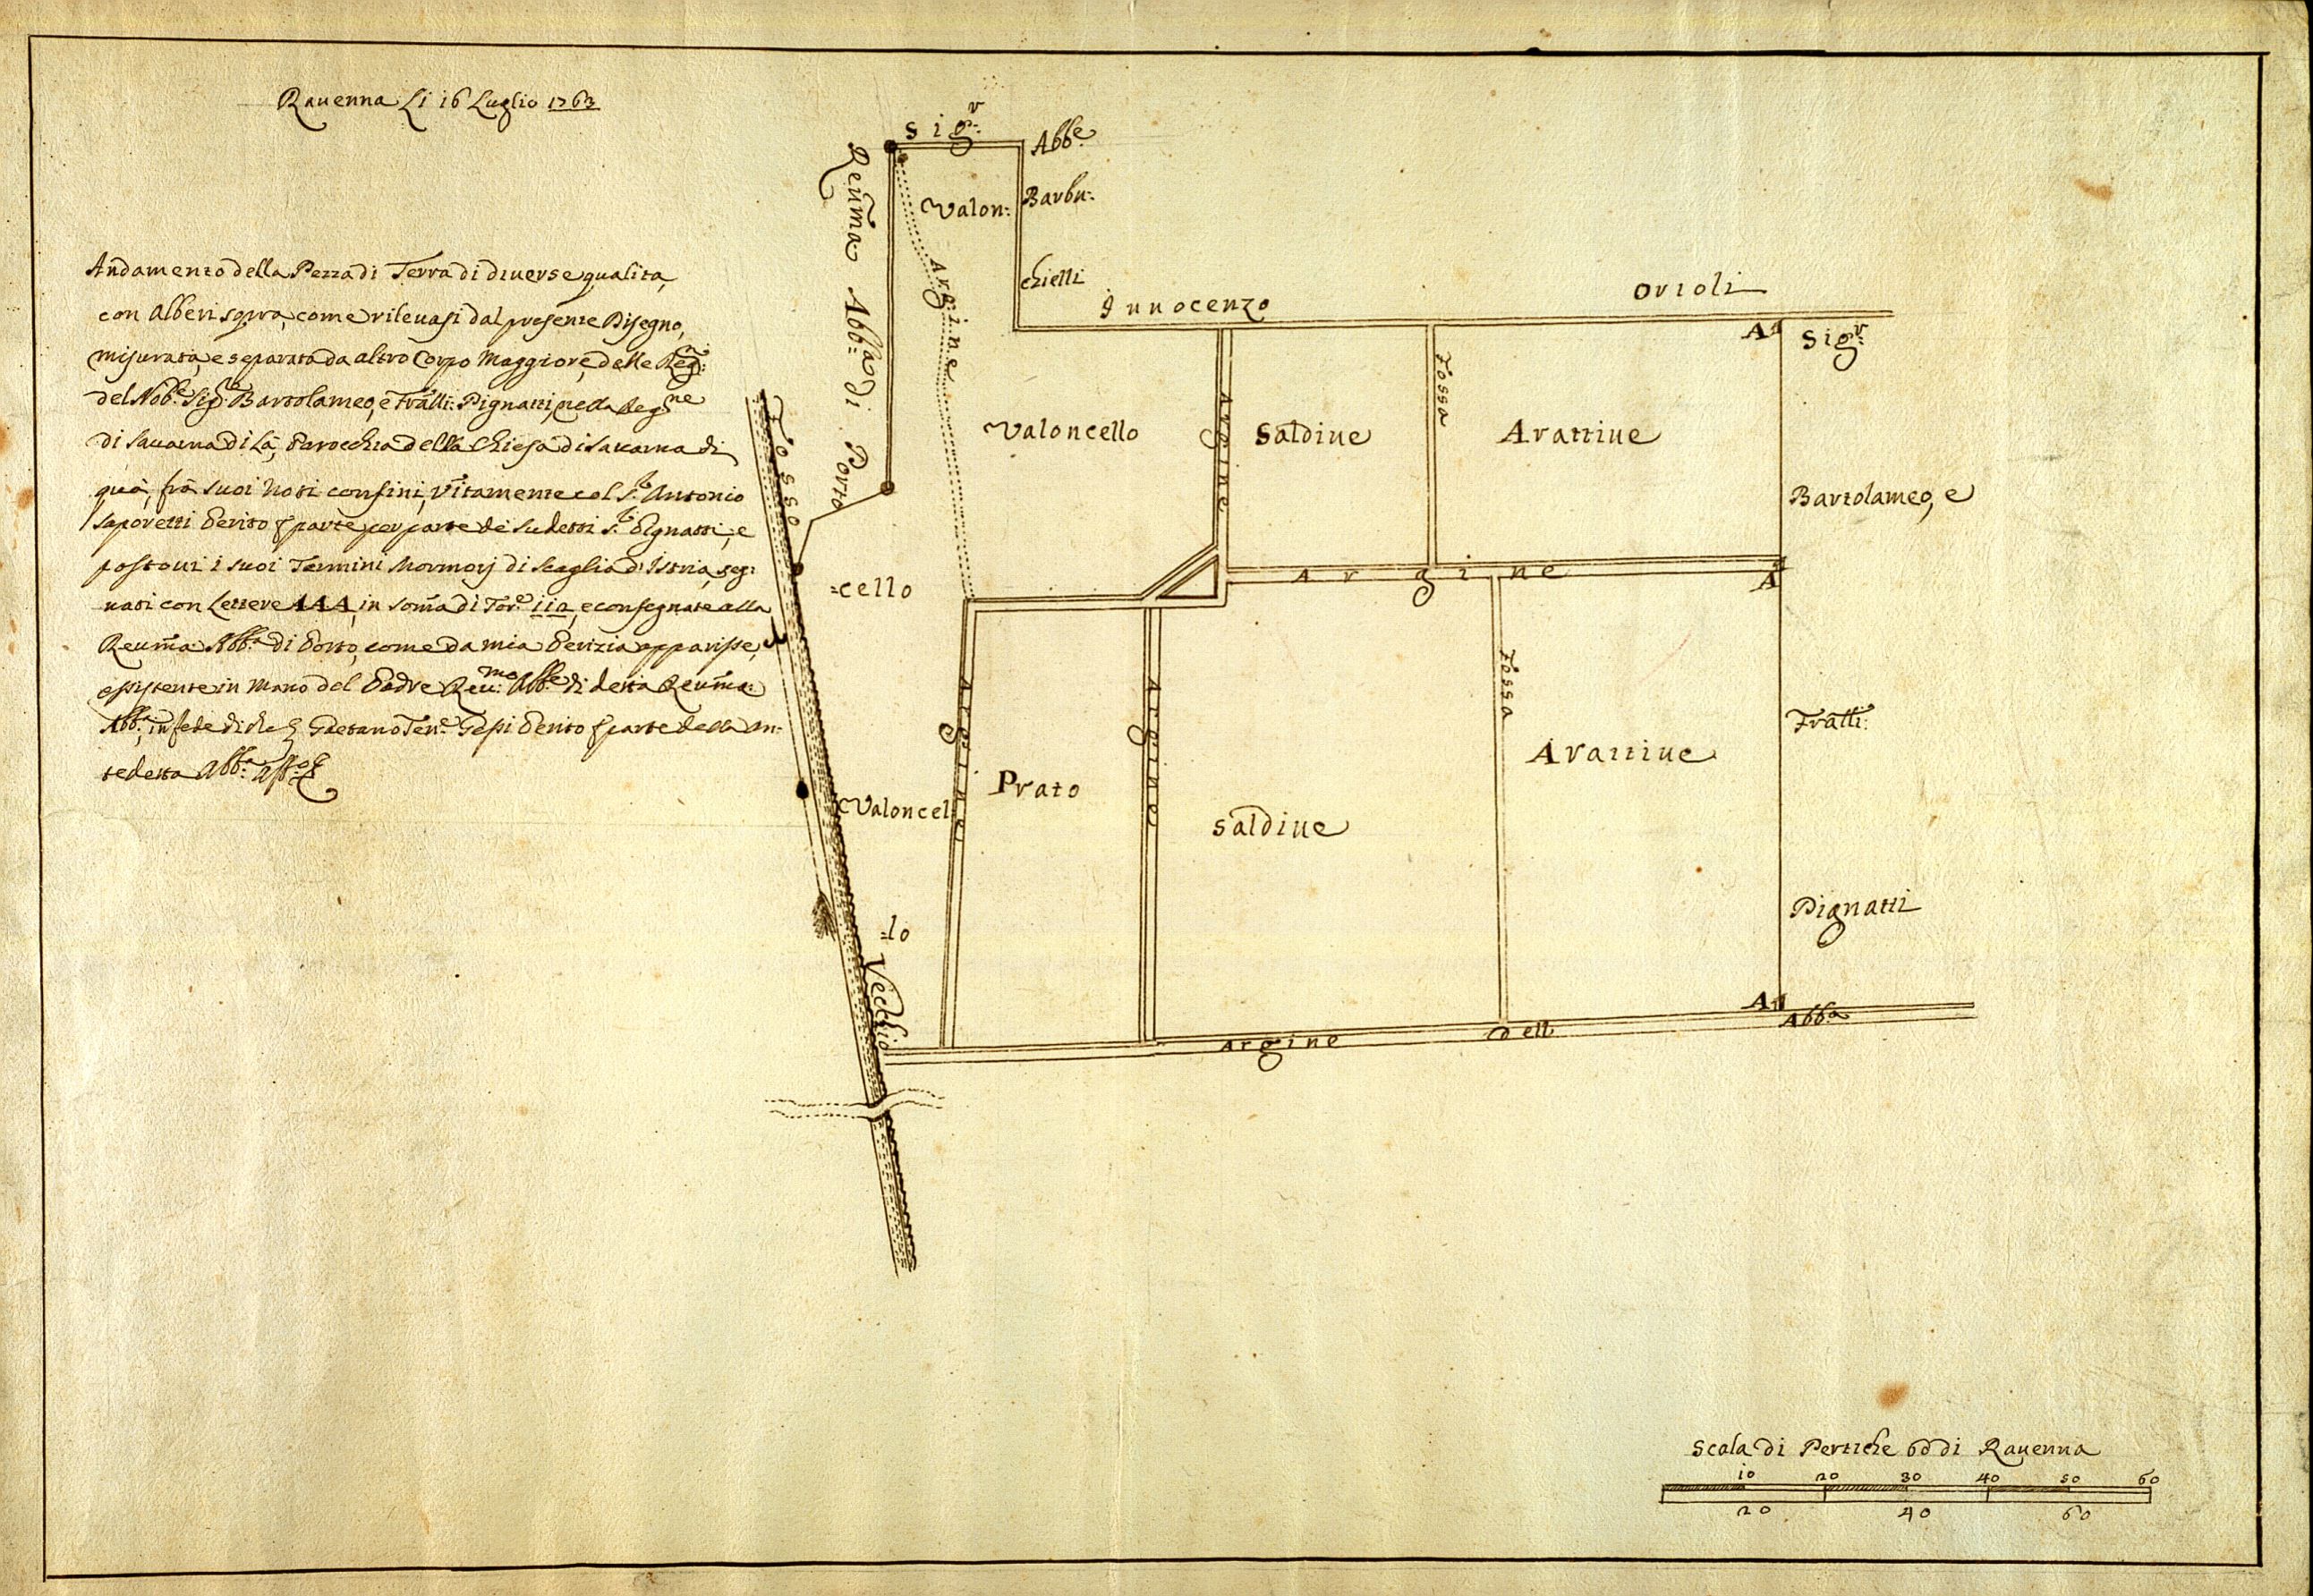 Rauenna Li 16 Luglio 1763
Andamento della Pezza di Terra di diuerse qualità,
con Alberi sopra, come rileuasi dal presente Disegno,
misurata, e separata da altro Corpo Maggiore, delle
del Nob.e Sig.r Bartolameo, e Fratlli: Pignatti, nella Reg.ne
di Sauarna di Là, Parocchia della Chiesa di Sauarna di
quà, frà suoi Noti confini, Vnitamente col S.r Antonio
Saporetti Perito per parte de Sudetti S.ri Pignatti, e
postoui i suoi Termini Marmorj di Scaglia d'Istria, seg:
nati con Lettere AAA, in Som̃a di Tor.e, e consegnate alla
Reum̃a Abb.a di Porto, come da mia Perizia apparisse,
essistente in Mano del Padre Reu:mo Abb.e di detta Reum̃a:
Abb.a, in fede di che Gaetano Ten.e Perito per parte della an:
tedetta Abb.a
Sig.r
Abb.e
Barbu:
chielli
Innocenzo
Orioli
Reum̃a Abb.a di Porto
Valon:
Argine
=cello
Valoncello
Argine
Saldiue
Fossa
Arattiue
A
Sig.r
Bartolameo, e
Fratlli:
Pignatti
Argine
A
Fosso
Vecchio
Valoncel
=lo
Argine
Prato
Argine
Saldiue
Fossa
Arattiue
A
Argine
dell
Abb.a
Scala di Pertiche 60 di Rauenna
10 20 30 40 50 60
20 40 60